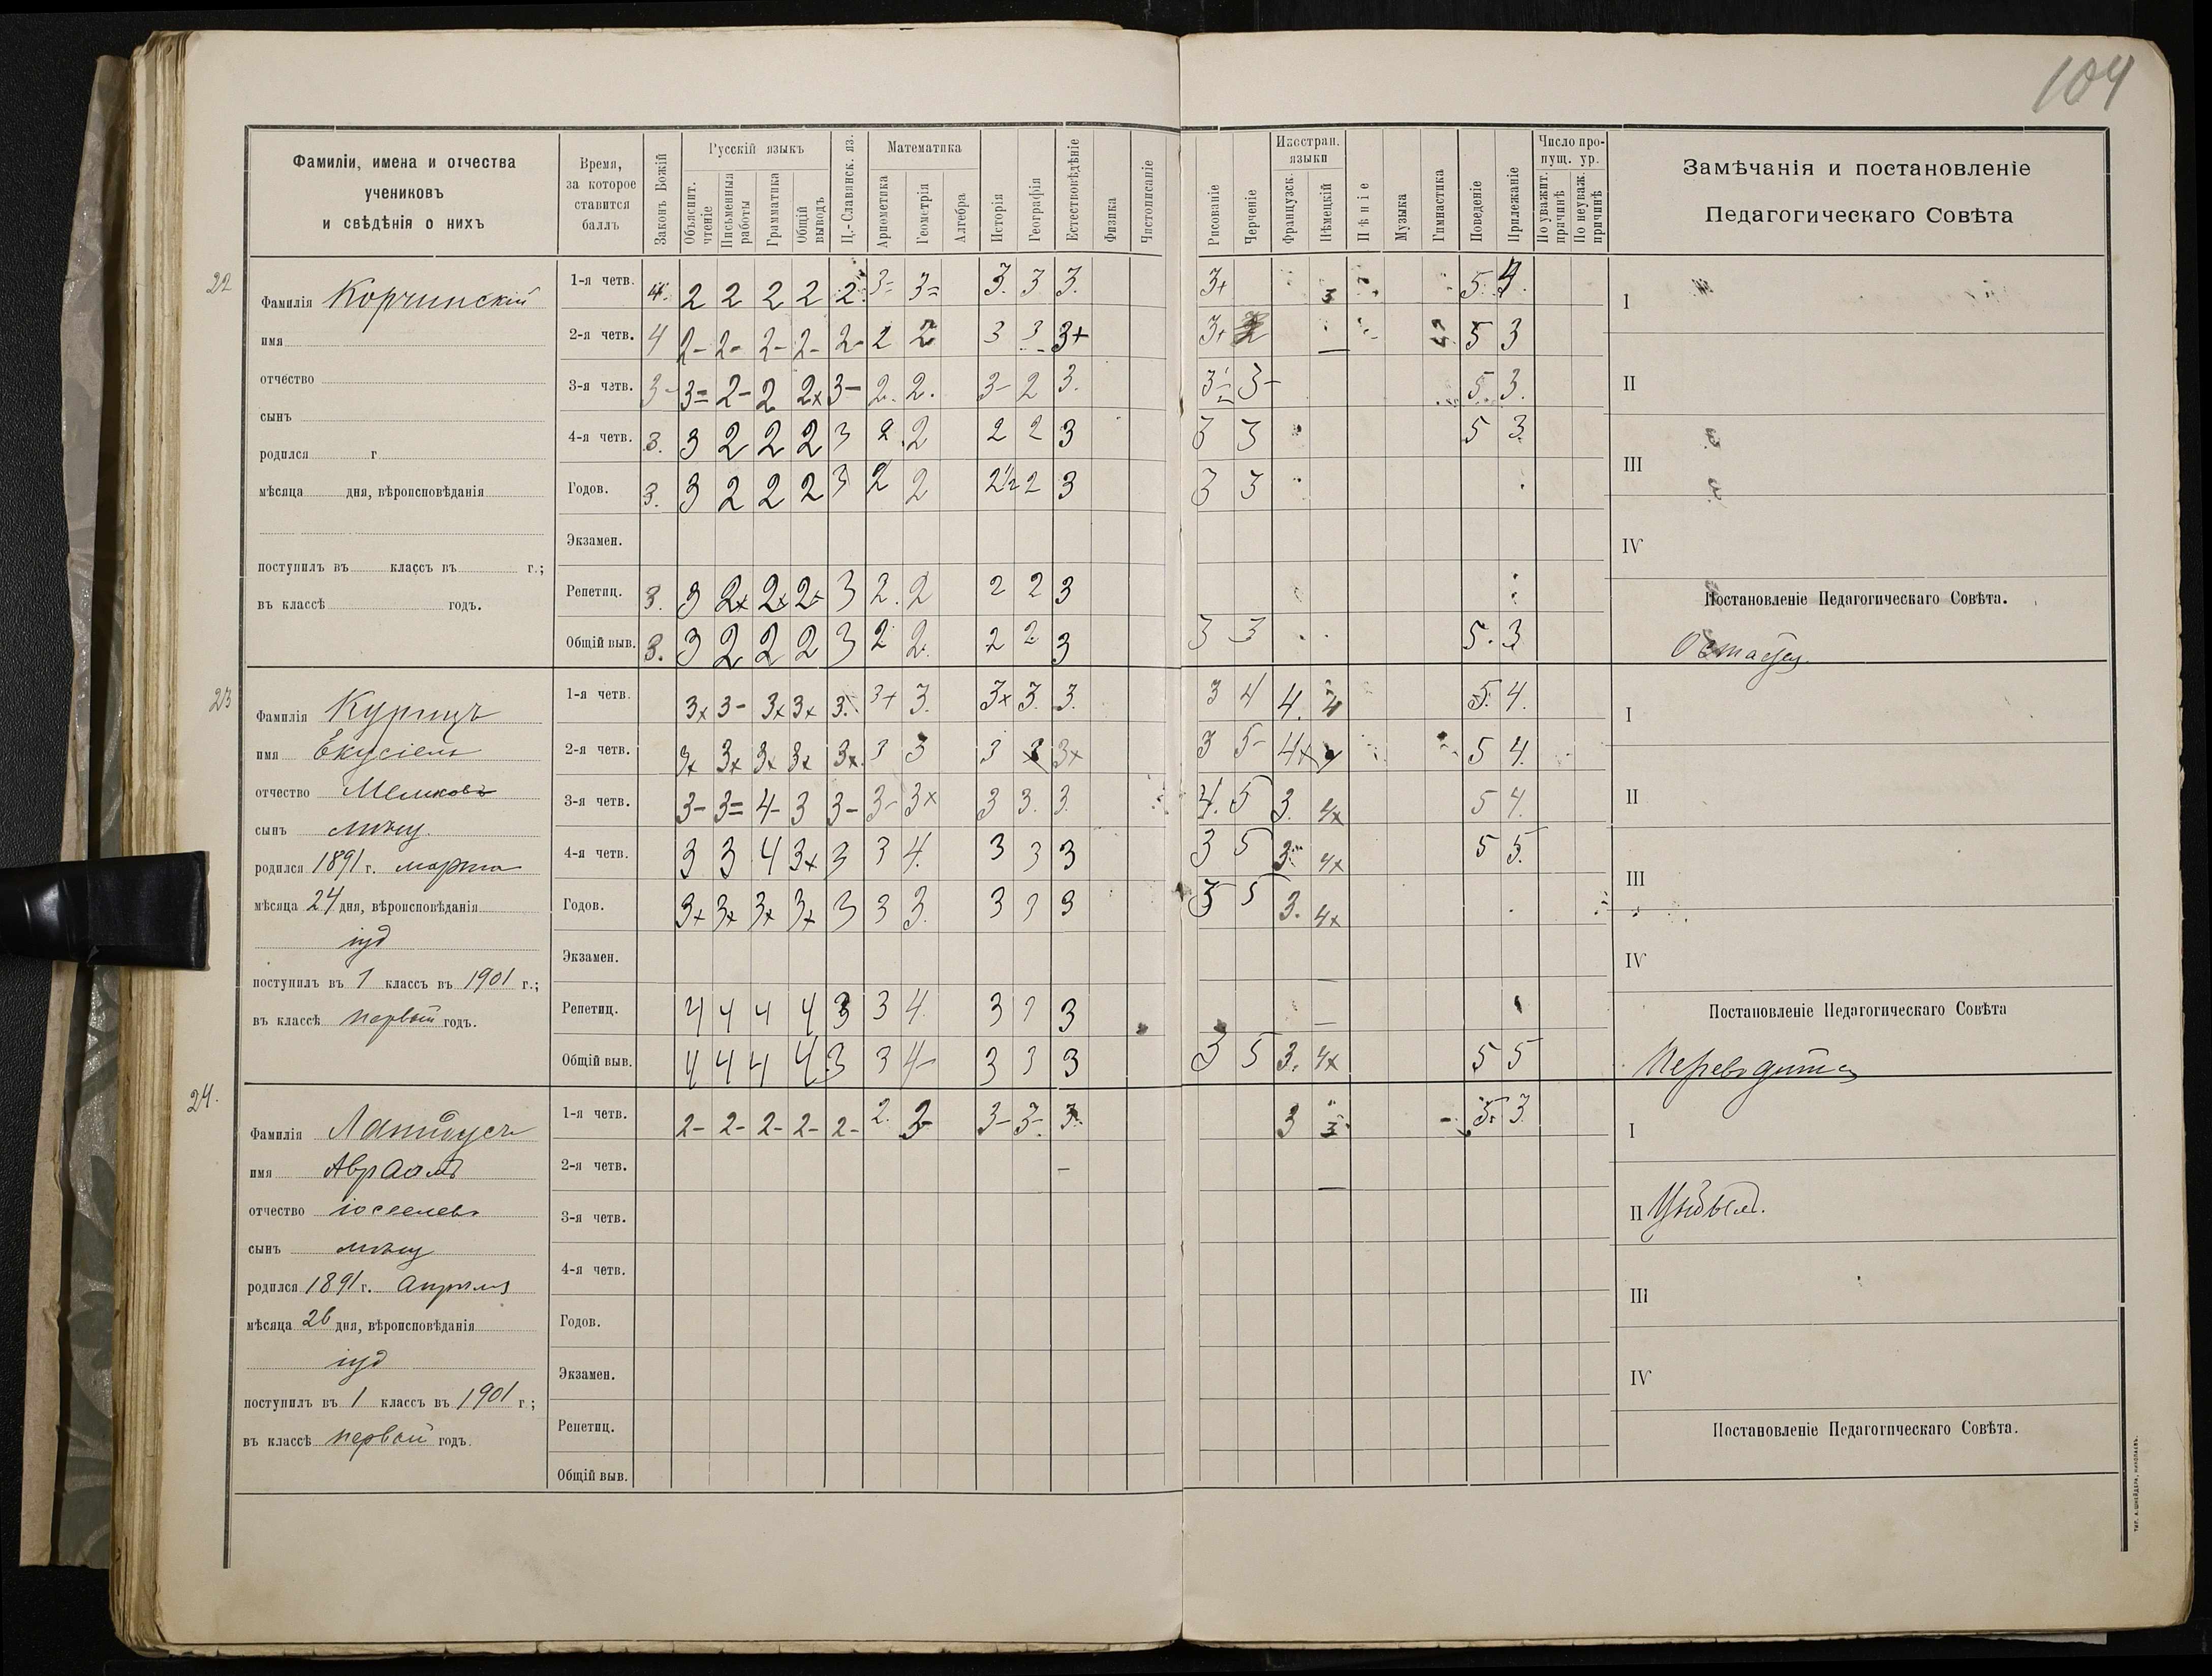 104
Фамиліи, имена и отчества
учениковъ
и свѣдѣнія о нихъ
Время,
за которое
ставится
баллъ
Законъ Божій
Русскій языкъ
Объяснит.
чтеніе
Письменныя
работы
Грамматика
Общій
выводъ
Ц.-Славянск. яз.
Математика
Ариѳметика
Геометрія
Алгебра
Исторія
Географія
Естествовѣдѣніе
Физика
Чистописаніе
Рисованіе
Черченіе
Иностран.
языки
Французск.
Нѣмецкій
Пѣніе
Музыка
Гимнастика
Поведеніе
Прилежаніе
Число про-
пущ. ур.
По уважит.
причинѣ
По неуваж.
причинѣ
Замѣчанія и постановленіе
Педагогическаго Совѣта
22
Фамилія Корчинскій
имя
отчество
сынъ
родился г
мѣсяца дня, вѣроисповѣданія
поступилъ въ классъ въ г.;
въ классѣ годъ.
1-я четв. 4 2 2 2 2 2 3= 3= 3. 3 3. 3+ 3 5. 4.
2-я четв. 4 2- 2- 2- 2- 2- 2 2 3 3 3+ 3+ 5 3
3-я четв. 3- 3= 2- 2 2x 3- 2. 2. 3- 2 3. 3- 5. 3.
4-я четв. 3. 3 2 2 2 3 2 2 2 2 3 3 3 5 3
Годов. 3. 3 2 2 2 3 2 2 2½ 2 3 3 3
Экзамен.
Репетиц. 3. 3 2x 2x 2x 3 2. 2 2 2 3
Общій выв. 3. 3 2 2 2 3 2 2. 2 2 3 3 3 5. 3
I
II
III
IV
Постановленіе Педагогическаго Совѣта.
Остается
23
Фамилія Курицъ
имя Екусіель
отчество
сынъ мѣщ.
родился 1891 г. марта
мѣсяца 24 дня, вѣроисповѣданія
іуд
поступилъ въ 1 классъ въ 1901 г.;
въ классѣ первый годъ.
1-я четв. 3x 3- 3x 3x 3. 3+ 3. 3x 3. 3. 3 4 4. 4 5. 4.
2-я четв. 3x 3x 3x 3x 3x. 3 3 3 3 3x 3 5- 4x 5 4.
3-я четв. 3- 3= 4- 3 3- 3- 3x 3 3. 3. 4. 5 3. 4x 5 4.
4-я четв. 3 3 4 3x 3 3 4. 3 3 3 3 5 3. 4x 5 5.
Годов. 3x 3x 3x 3x 3 3 3. 3 3 3 3 5 3. 4x
Экзамен.
Репетиц. 4 4 4 4 3 3 4. 3 3 3
Общій выв. 4 4 4 4 3 3 4- 3 3 3 3 5 3. 4x 5 5
I
II
III
IV
Постановленіе Педагогическаго Совѣта
Переводится
24.
Фамилія Лапидусъ
имя Авраамъ
отчество Іоселевъ
сынъ мѣщ
родился 1891 г. Апрѣля
мѣсяца 26 дня, вѣроисповѣданія
іуд
поступилъ въ 1 классъ въ 1901 г.;
въ классѣ первый годъ.
1-я четв. 2- 2- 2- 2- 2- 2. 3- 3- 3. 3 3 5. 3.
2-я четв.
3-я четв.
4-я четв.
Годов.
Экзамен.
Репетиц.
Общій выв.
I
II
III
IV
Постановленіе Педагогическаго Совѣта.
ТИП. А. ШНЕЙДЕРА, НИКОЛАЕВЪ.